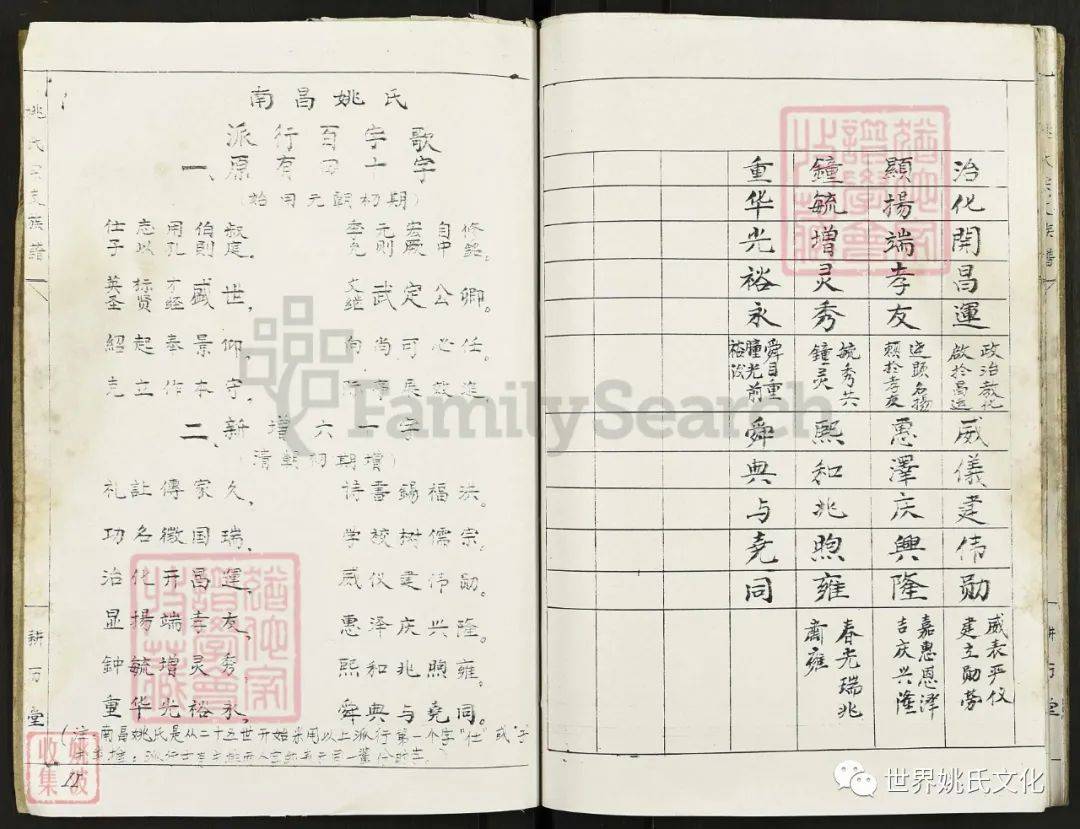 南昌姚氏
派行百字歌
一、原有四十字
（始用元朝初期）
仕志用伯叔 季元宏自修
子以孔則庭。 克则厥中銘。
英标才盛世， 文武定公卿。
圣贤经 继
紹起奉景仰， 向尚可心任。
克立作本守，
二、新增六十字
（清朝初期增）
礼註傳家久， 诗書錫福洪。
功名徵国瑞， 学校树儒宗。
治化开昌運， 威仪建伟勋。
显揚端孝友， 惠泽庆兴隆。
钟毓增灵秀， 熙和兆煦雍。
重华光裕永， 舜典与堯同。
（注：南昌姚氏是从二十五世开始采用以上派行第一个字"仕"或"子"
15
治化開昌運
政治教化
啟於昌运
威儀建伟勋
威表严仪
建立勋劳
顯揚端孝友
显名揚
於孝友
惠澤庆興隆
嘉惠恩泽
吉庆兴隆
鐘毓增灵秀
毓秀共
鐘灵
熙和兆煦雍
春光瑞兆
肅雍
重华光裕永
舜目重
瞳光前
裕
舜典与堯同
姚氏宗支族譜
耕万堂
耕万堂
姚波
收集
FamilySearch
世界姚氏文化